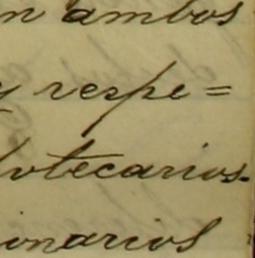 n ambos
y respe=
lotecarios.
ionarios